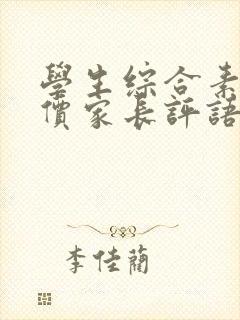 學生綜合素
價家長評語
李佳蘭